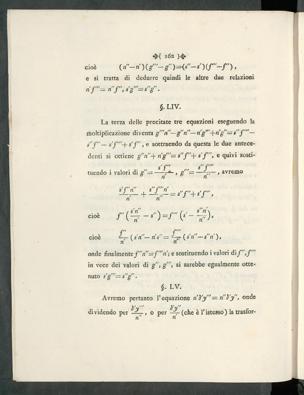 ( 262 )
cioè (n''−n')(g'''−g'')=(s''−s')(f'''−f''),
e si tratta di dedurre quindi le altre due relazioni
n'f'''= n''f'', s'g'''= s''g''.
§. LIV.
La terza delle precitate tre equazioni eseguendo la
moltiplicazione diventa g'''n''−g''n''−n'g'''+n'g''=s''f'''−
s'f'''−s''f''+s'f'', e sottraendo da questa le due antece-
denti si ottiene g''n''+n'g'''=s''f''+s'f''', e quivi sosti-
tuendo i valori di g''= , g'''= , avremo
cioè
cioè
onde finalmente f''n''=f'''n'; e sostituendo i valori di f'', f'''
in vece dei valori di g'', g''', si sarebbe egualmente otte-
nuto s'g'''= s''g''.
§. LV.
Avremo pertanto l'equazione n'Yy'''= n''Yy'', onde
dividendo per , o per (che è l'istesso) la trasfor-